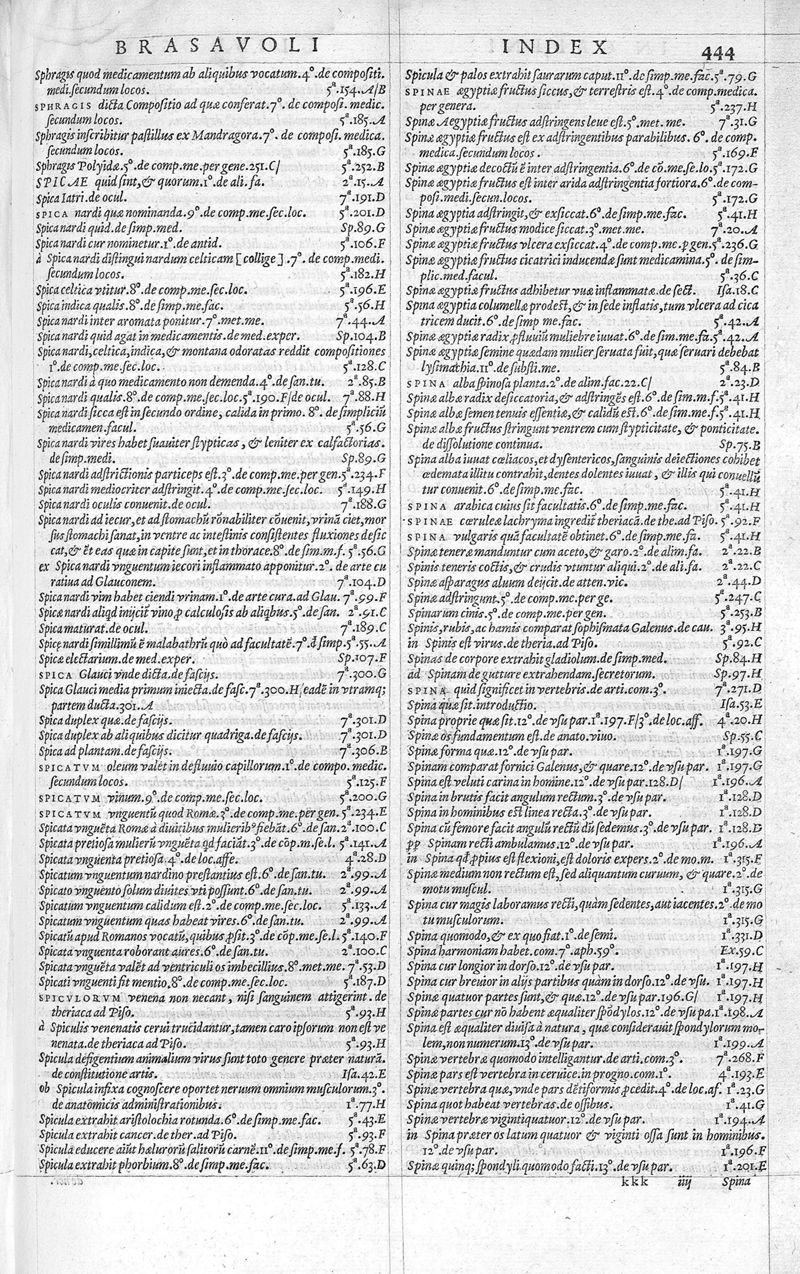 BRASAVOLI
Sphragis quod medicamentum ab aliquibus vocatum.4°.de compositi.
medi.secundum locos. 5ª.154.A/B
SPHRAGIS dicta Compositio ad quæ conferat.7°. de composi. medic.
secundum locos. 5ª.185.A
Sphragis inscribitur pastillus ex Mandragora.7°. de composi. medica.
secundum locos. 5ª.185.G
Sphragis Polyidæ.5°.de comp.me.per gene.251.C/ 5ª.252.B
SPICAE quid sint,& quorum.1°.de ali.fa. 2ª.15.A
Spica Iatri.de ocul. 7ª.191.D
SPICA nardi quæ nominanda.9°.de comp.me.sec.loc. 5ª.201.D
Spica nardi quid.de simp.med. Sp.89.G
Spica nardi cur nominetur.1°.de antid. 5ª.106.F
à Spica nardi distingui nardum celticam [ collige ] .7°. de comp.medi.
secundum locos. 5ª.182.H
Spica celtica vtitur.8°.de comp.me.sec.loc. 5ª.196.E
Spica indica qualis.8°.de simp.me.fac. 5ª.56.H
Spica nardi inter aromata ponitur.7°.met.me. 7ª.44.A
Spica nardi quid agat in medicamentis.de med.exper. Sp.104.B
Spica nardi,celtica,indica,& montana odoratas reddit compositiones
1°.de comp.me.sec.loc. 5ª.128.C
Spica nardi à quo medicamento non demenda.4°.de san.tu. 2ª.85.B
Spica nardi qualis.8°.de comp.me.sec.loc.5ª.190.F/de ocul. 7ª.88.H
Spica nardi sicca est in secundo ordine, calida in primo. 8°. de simpliciū
medicam.facul. 5ª.56.G
Spica nardi vires habet suauiter stypticas, & leniter ex calfactorias.
de simp.medi. Sp.89.G
Spica nardi adstrictionis particeps est.3°.de comp.me.per gen.5ª.234.F
Spica nardi mediocriter adstringit.4°.de comp.me.sec.loc. 5ª.149.H
Spica nardi oculis conuenit.de ocul. 7ª.188.G
Spica nardi ad iecur,et ad stomachū rōnabiliter cōuenit,vrinā ciet,mor
sus stomachi sanat,in ventre ac intestinis consistentes fluxiones desic
cat,& ēt eas quæ in capite sunt,et in thorace.8°.de sim.m.f. 5ª.56.G
ex Spica nardi vnguentum iecori inflammato apponitur.2°. de arte cu
ratiua ad Glauconem. 7ª.104.D
Spica nardi vim habet ciendi vrinam.1°.de arte cura.ad Glau. 7ª.99.F
Spicæ nardi aliqd inijciūt vino,p calculosis ab aliqbus.5°.de san. 2ª.91.C
Spica maturat.de ocul. 7ª.189.C
Spicę nardi simillimū ē malabathrū quò ad facultatē.7°.d simp.5ª.55.A
Spicæ electarium.de med.exper. Sp.107.F
SPICA Glauci vnde dicta.de fascijs. 7ª.300.G
Spica Glauci media primum iniecta.de fasc.7ª.300.H/eadē in vtramq;
partem ducta.301.A
Spica duplex quæ.de fascijs. 7ª.301.D
Spica duplex ab aliquibus dicitur quadriga.de fascijs. 7ª.301.D
Spica ad plantam.de fascijs. 7ª.306.B
SPICATVM oleum valēt in defluuio capillorum.1°.de compo.medic.
secundum locos. 5ª.125.F
SPICATVM vinum.9°.de comp.me.sec.loc. 5ª.200.G
SPICATVM vnguentū quod Romæ.3°.de comp.me.per gen. 5ª.234.E
Spicata vnguēta Romæ à diuitibus mulierib⁹ fiebāt.6°.de san. 2ª.100.C
Spicata pretiosa mulierū vnguēta qd faciāt.3°.de cōp.m.se.l. 5ª.141.A
Spicata vnguenta pretiosa.4°.de loc.affe. 4ª.28.D
Spicatum vnguentum nardino prestantius est.6°.de san.tu. 2ª.99.A
Spicato vnguento solum diuites vti possunt.6°.de san.tu. 2ª.99.A
Spicatum vnguentum calidum est.2°.de comp.me.sec.loc. 5ª.133.A
Spicatum vnguentum quas habeat vires.6°.de san.tu. 2ª.99.A
Spicatū apud Romanos vocatū,quibus psit.3°.de cōp.me.se.l. 5ª.140.F
Spicata vnguenta roborant aures.6°.de san.tu. 2ª.100.C
Spicata vnguēta valēt ad ventriculi os imbecillius.8°.met.me. 7ª.53.D
Spicati vnguenti fit mentio,8°.de comp.me.sec.loc. 5ª.187.D
SPICVLORVM venena non necant, nisi sanguinem attigerint. de
theriaca ad Piso. 5ª.93.H
à Spiculis venenatis cerui trucidantur,tamen caro ipsorum non est ve
nenata.de theriaca ad Piso. 5ª.93.H
Spicula defigentium animalium virus sunt toto genere præter naturā.
de constitutione artis. Isa.42.E
ob Spicula infixa cognoscere oportet neruum omnium musculorum.3°.
de anatomicis administrationibus. 1ª.77.H
Spicula extrahit aristolochia rotunda.6°.de simp.me.fac. 5ª.43.E
Spicula extrahit cancer.de ther.ad Piso. 5ª.93.F
Spicula educere aiūt hælurorū salitorū carnē.11°.de simp.me.f. 5ª.78.F
Spicula extrahit phorbium.8°.de simp.me.fac. 5ª.63.D
INDEX 444
Spicula & palos extrahit saurarum caput.11°.de simp.me.fac. 5ª.79.G
SPINAE ægyptiæ fructus siccus,& terrestris est.4°.de comp.medica.
per genera. 5ª.237.H
Spinæ Aegyptiæ fructus adstringens leue est.5°.met. me. 7ª.31.G
Spinæ ægyptiæ fructus est ex adstringentibus parabilibus. 6°. de comp.
medica.secundum locos. 5ª.169.F
Spinæ ægyptiæ decoctū ē inter adstringentia.6°.de cō.me.se.lo.5ª.172.G
Spinæ ægyptiæ fructus est inter arida adstringentia fortiora.6°.de com-
posi.medi.secun.locos. 5ª.172.G
Spina ægyptia adstringit,& exsiccat.6°.de simp.me.fac. 5ª.41.H
Spinæ ægyptiæ fructus modice siccat.3°.met.me. 7ª.20.A
Spinæ ægyptiæ fructus vlcera exsiccat.4°.de comp.me.p gen.5ª.236.G
Spinæ ægyptiæ fructus cicatrici inducendæ sunt medicamina.5°. de sim-
plic.med.facul. 5ª.36.C
Spinæ ægyptiæ fructus adhibetur vuæ inflammatæ.de sect. Isa.18.C
Spina ægyptia columellæ prodest,& in sede inflatis,tum vlcera ad cica
tricem ducit.6°.de simp me.fac. 5ª.42.A
Spinæ ægyptiæ radix pfluuiū muliebre iuuat.6°.de sim.me.fa.5ª.42.A
Spinæ ægyptiæ semine quædam mulier seruata fuit,quæ seruari debebat
lysimathia.11°.de subsli.me. 5ª.84.B
SPINA alba spinosa planta.2°.de alim.fac.22.C/ 2ª.23.D
Spinæ albæ radix desiccatoria,& adstringēs est.6°.de sim.m.f.5ª.41.H
Spinæ albæ semen tenuis essentiæ,& calidū est.6°.de sim.me.f.5ª.41.H
Spinæ albæ fructus stringunt ventrem cum stypticitate, & ponticitate.
de dissolutione continua. Sp.75.B
Spina alba iuuat cœliacos,et dysentericos,sanguinis deiectiones cohibet
œdemata illitu contrahit,dentes dolentes iuuat, & illis qui conuellū
tur conuenit.6°.de simp.me.fac. 5ª.41.H
SPINA arabica cuius sit facultatis.6°.de simp.me.fac. 5ª.41.H
SPINAE cœruleæ lachryma ingredit̄ theriacā.de the.ad Piso. 5ª.92.F
SPINA vulgaris quā facultatē obtinet.6°.de simp.me.fa. 5ª.41.H
Spinæ teneræ manduntur cum aceto,& garo.2°.de alim.fa. 2ª.22.B
Spinis teneris coctis,& crudis vtuntur aliqui.2°.de ali.fa. 2ª.22.C
Spinæ asparagus aluum deijcit.de atten.vic. 2ª.44.D
Spinæ adstringunt.5°.de comp.mc.per ge. 5ª.247.C
Spinarum cinis.5°.de comp.me.per gen. 5ª.253.B
Spinis,rubis,ac hamis comparat sophismata Galenus.de cau. 3ª.95.H
in Spinis est virus.de theria.ad Piso. 5ª.92.C
Spinas de corpore extrahit gladiolum.de simp.med. Sp.84.H
ad Spinam de gutture extrahendam.secretorum. Sp.97.H
SPINA quid significet in vertebris.de arti.com.3°. 7ª.271.D
Spina quæ sit.introductio. Isa.53.E
Spina proprie quæ sit.12°.de vsu par.1ª.197.F/3°.de loc.aff. 4ª.20.H
Spinæ os fundamentum est.de anato.viuo. Sp.55.C
Spinæ forma quæ.12°.de vsu par. 1ª.197.G
Spinam comparat fornici Galenus,& quare.12°.de vsu par. 1ª.197.G
Spina est veluti carina in homine.12°.de vsu par.128.D/ 1ª.196.A
Spina in brutis facit angulum rectum.3°.de vsu par. 1ª.128.D
Spina in hominibus est linea recta.3°.de vsu par. 1ª.128.D
Spina cū femore facit angulū rectū dū sedemus.3°.de vsu par. 1ª.128.D
pp Spinam recti ambulamus.12°.de vsu par. 1ª.196.A
in Spina qd ppius est flexioni,est doloris expers.2°.de mo.m. 1ª.315.F
Spinæ medium non rectum est,sed aliquantum curuum, & quare.2°.de
motu muscul. 1ª.315.G
Spina cur magis laboramus recti,quàm sedentes,aut iacentes.2°.de mo
tu musculorum. 1ª.315.G
Spina quomodo,& ex quo fiat.1°.de semi. 1ª.331.D
Spina harmoniam habet.com.7ª.aph.59°. Ex.59.C
Spina cur longior in dorso.12°.de vsu par. 1ª.197.H
Spina cur breuior in alijs partibus quàm in dorso.12°.de vsu. 1ª.197.H
Spinæ quatuor partes sunt,& quæ.12°.de vsu par.196.G/ 1ª.197.H
Spinæ partes cur nō habent æqualiter spōdylos.12°.de vsu pa.1ª.198.A
Spina est æqualiter diuisa à natura, quæ considerauit spondylorum mo-
lem,non numerum.13°.de vsu par. 1ª.199.A
Spinæ vertebræ quomodo intelligantur.de arti.com.3°. 7ª.268.F
Spinæ pars est vertebra in ceruice.in progno.com.1°. 4ª.193.E
Spinæ vertebra quæ,vnde pars dētiformis pcedit.4°.de loc.af. 1ª.23.G
Spina quot habeat vertebras.de ossibus. 1ª.41.G
Spinæ vertebræ vigintiquatuor.12°.de vsu par. 1ª.194.A
in Spina præter os latum quatuor & viginti ossa sunt in hominibus.
12°.de vsu par. 1ª.196.F
Spinæ quinq; spondyli quomodo facti.13°.de vsu par. 1ª.201.E
kkk iiij Spina